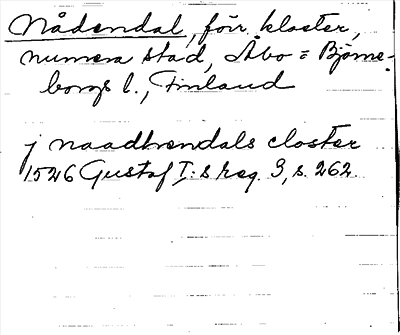 Nådendal, förr kloster,
numera stad, Åbo = Björne-
borgs l., Finland
j naadhændals closter
1526 Gustaf I:s reg. 3, s. 262.